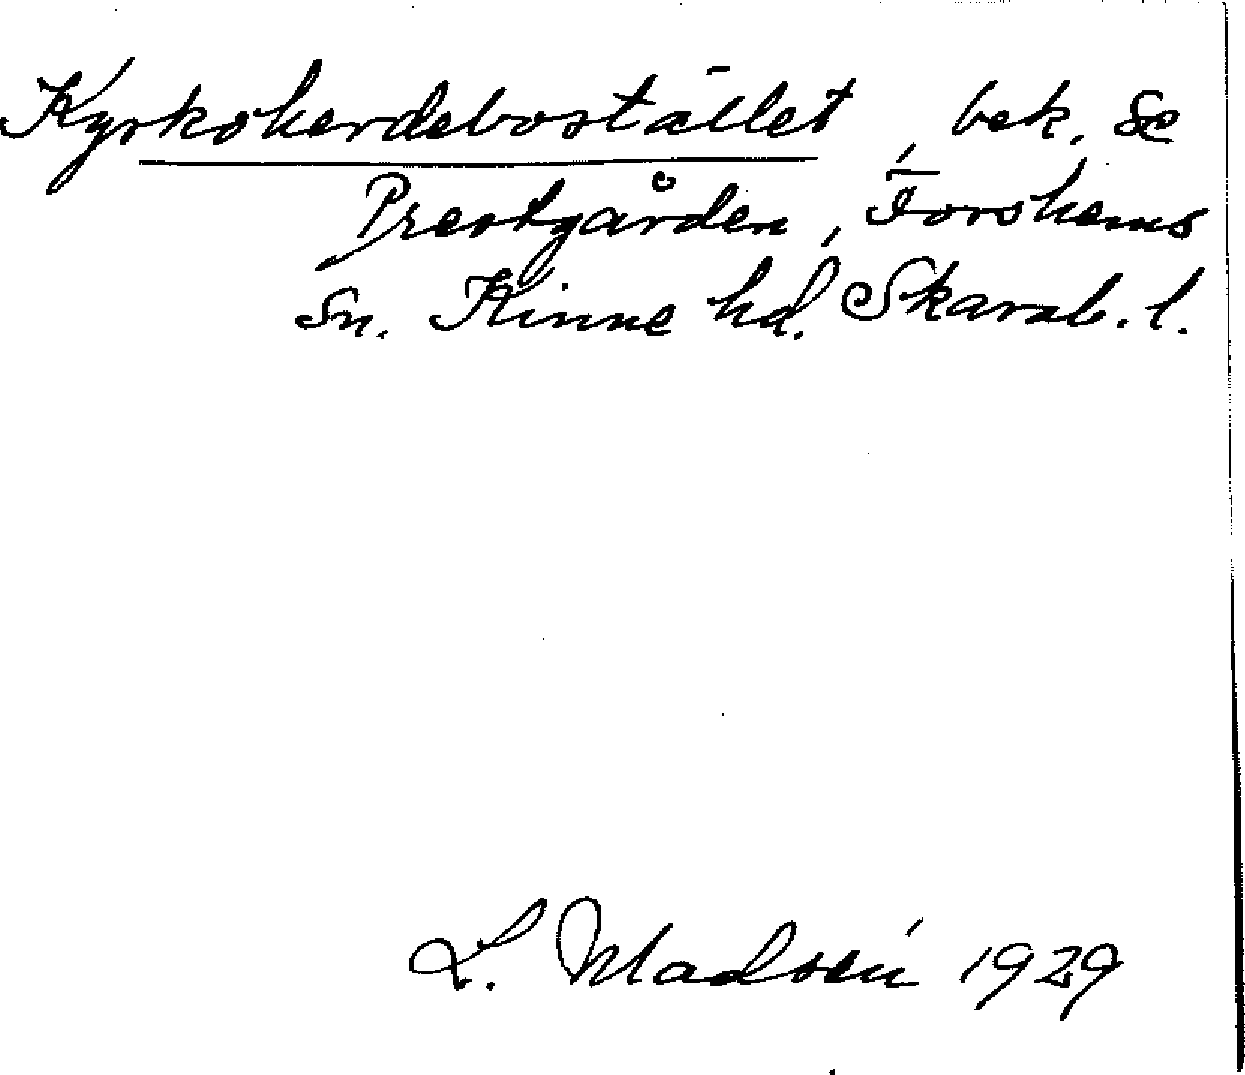 Kyrkoherdebostället, bek. Se
Prestgården, Forshems
Sn. Kinne hd. Skarab. l.
L. Madsén 1929